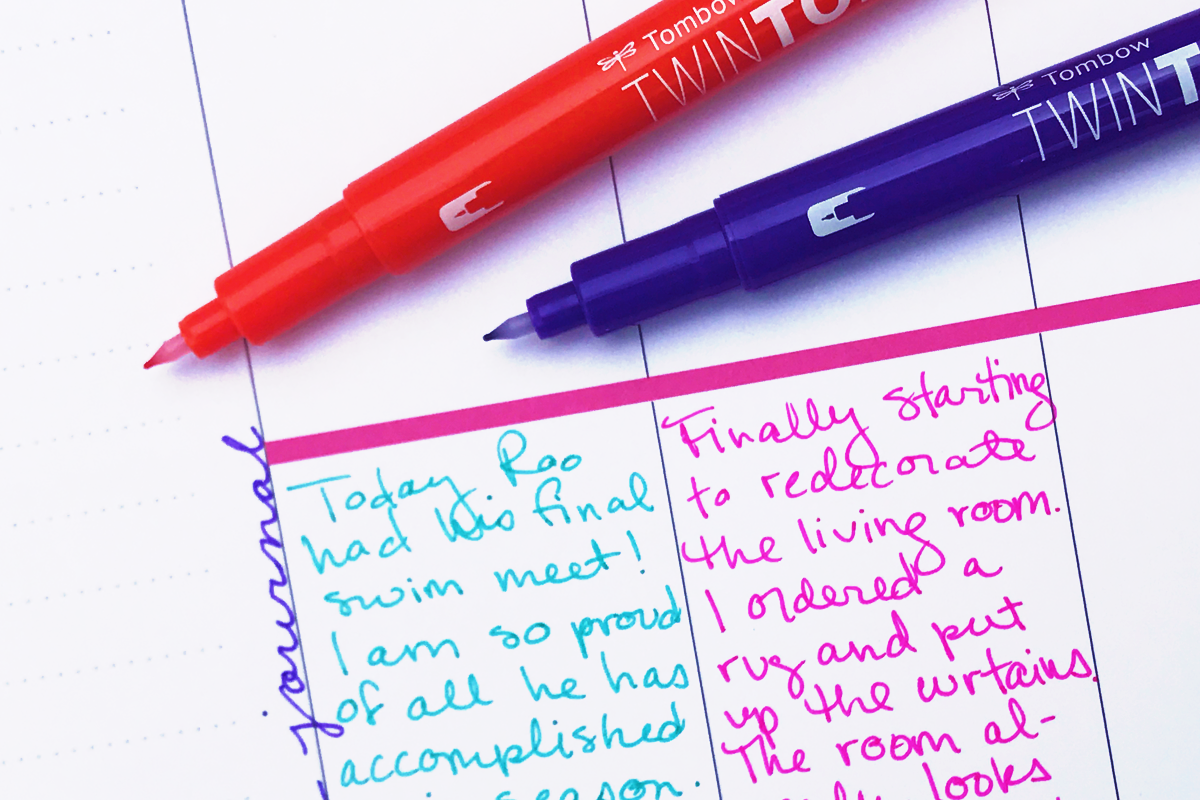 Tombow
TWINTO
Tombow
TWINT
journal
Today Roo
had his final
swim meet!
I am so proud
of all he has
accomplished
season.
Finally starting
to redecorate
the living room.
I ordered a
rug and put
up the curtains.
The room al-
looks